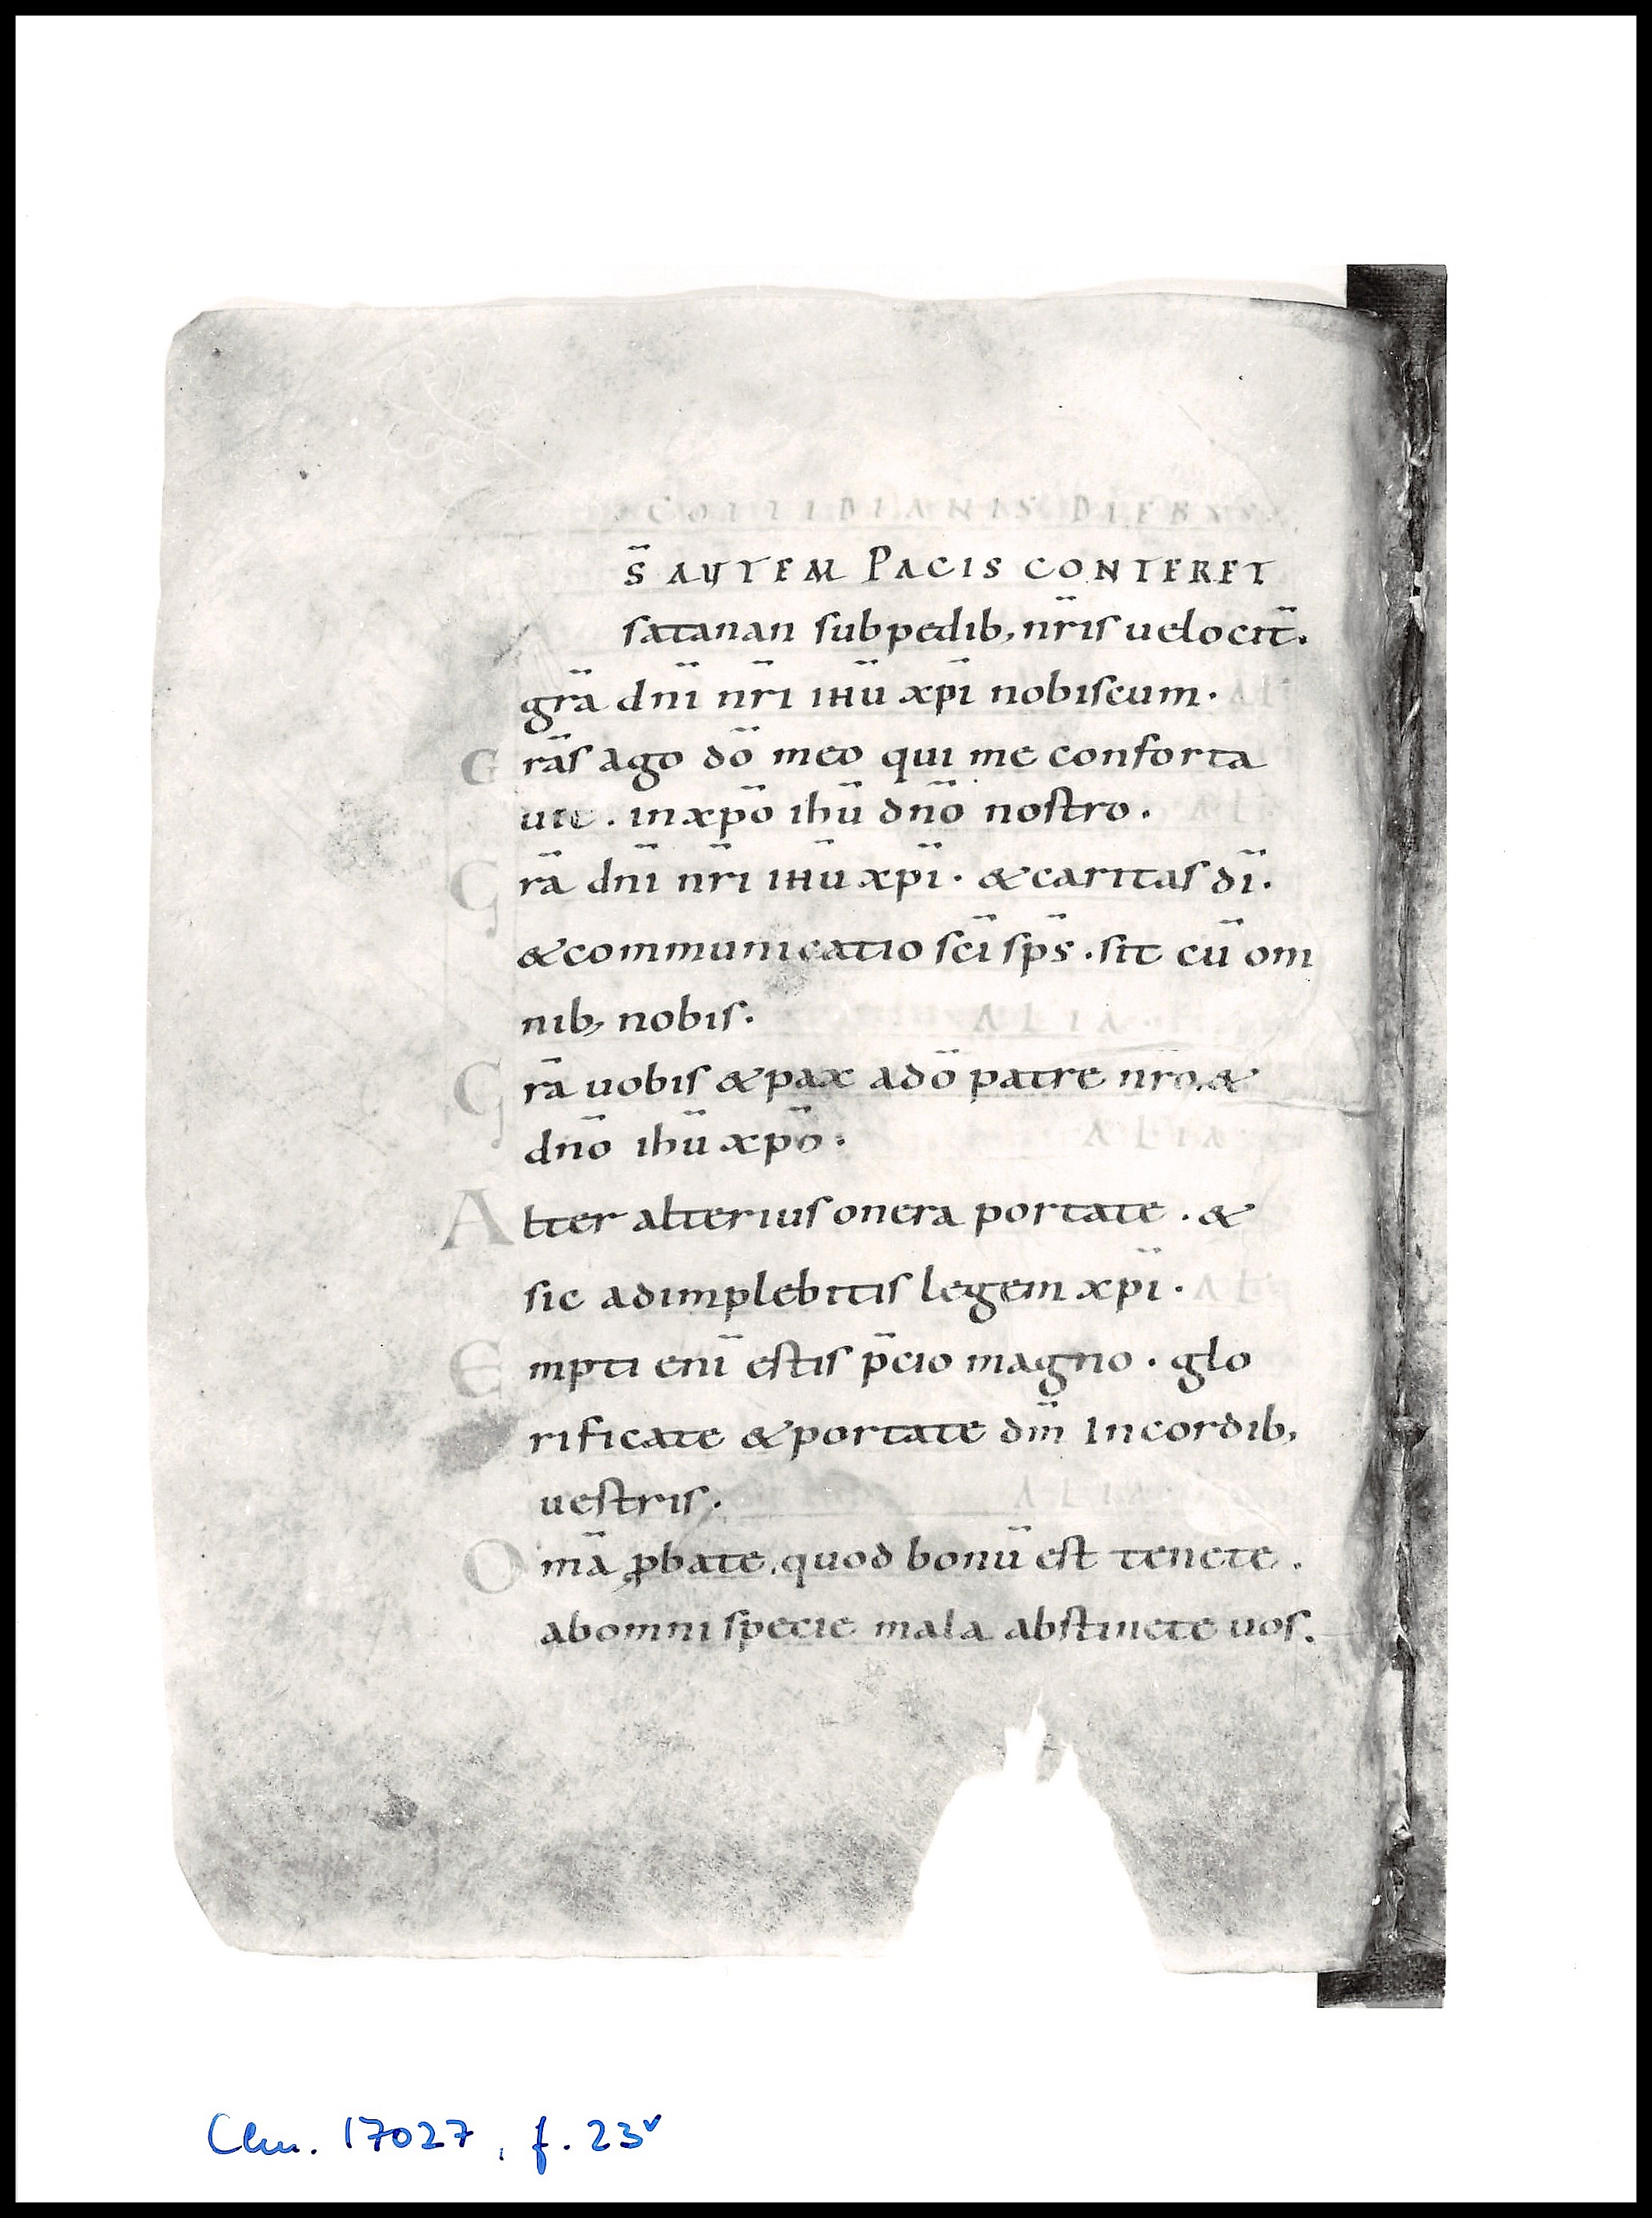 COTTIDIANIS DIEBUS
S̄ AUTEM PACIS CONTERET
satanan subpedib, nr̄is uelocit̄.
grā dnī nr̄i ıHū xpī nobiscum. ALI
G rās ago dō meo qui me conforta
uit. inxpō ihū dnō nostro. ALI
G rā dnī nr̄i ıHū xpī. &caritas dī.
&communicatio scī sps̄. sit cū om
nib, nobis. ALIA.
G rā uobis &pax adō patre nrō. &
dnō ihū xpō. ALIA
A lter alterius onera portate. &
sic adimplebitis legem xpī. ALI
E mpti enī estis p̄cio magno. glo
rificate &portate dm̄ Incordib,
uestris. ALIA.
O mā ꝓbate. quod bonū est tenete.
abomni specie mala abstinete uos.
Clm. 17027, f. 23v